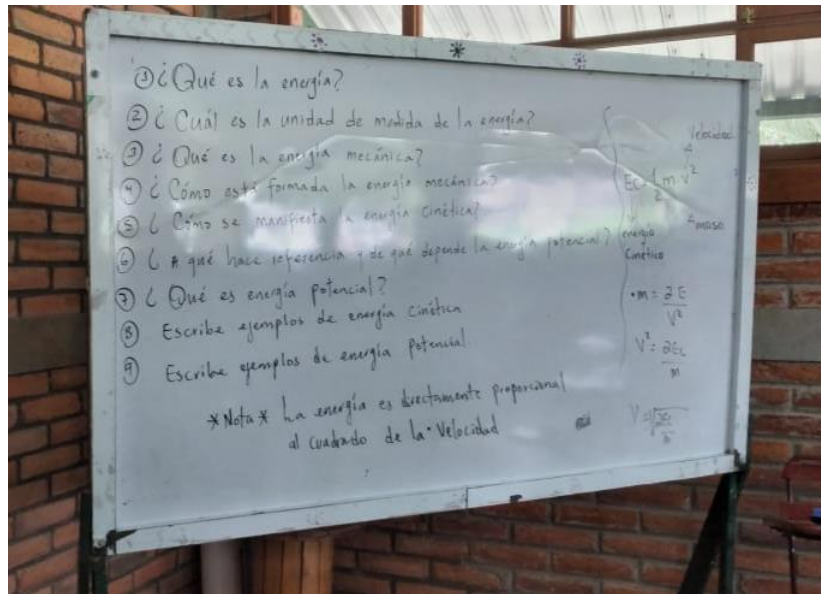 ① ¿Qué es la energía?
② ¿Cuál es la unidad de medida de la energía?
③ ¿Qué es la energía mecánica?
④ ¿Cómo está formada la energía mecánica?
⑤ ¿Cómo se manifiesta la energía cinética?
⑥ ¿A qué hace referencia y de qué depende la energía potencial?
⑦ ¿Qué es energía potencial?
⑧ Escribe ejemplos de energía cinética
⑨ Escribe ejemplos de energía potencial
*Nota* La energía es directamente proporcional
al cuadrado de la velocidad
Velocidad
Ec = 1/2 m · v²
masa
energía
Cinética
• m = 2E/V²
V² = 2Ec/m
V = √2Ec/m